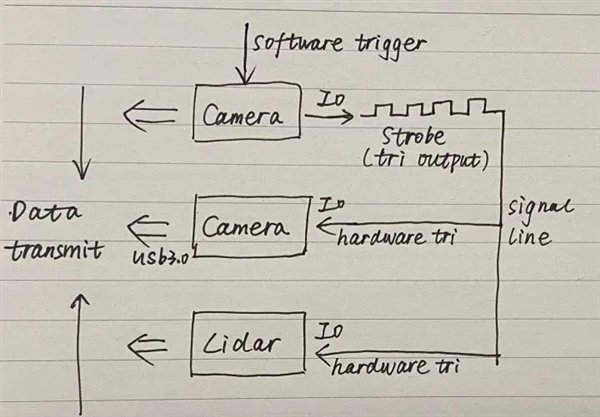 software trigger
Camera
IO
Strobe
(tri output)
Data
transmit
Camera
IO
hardware tri
signal
line
usb3.0
Lidar
IO
hardware tri